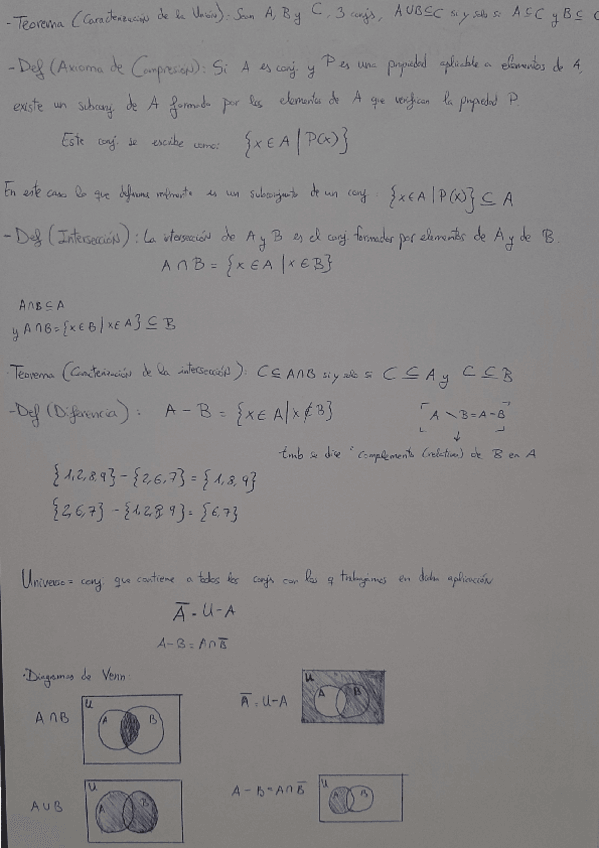 - Teorema (Caracterización de la Unión): Sean A, B y C, 3 conjs, A∪B⊆C si y solo si A⊆C y B⊆C
- Def (Axioma de Compresión): Si A es conj. y P es una propiedad aplicable a elementos de A,
existe un subconj. de A formado por los elementos de A que verifican la propiedad P.
Este conj. se escribe como: {x∈A | P(x)}
En este caso lo que definimos realmente es un subconjunto de un conj. {x∈A | P(x)} ⊆ A
- Def (Intersección): La intersección de A y B es el conj. formador por elementos de A y de B.
A∩B = {x∈A | x∈B}
A∩B⊆A
y A∩B={x∈B | x∈A} ⊆ B
· Teorema (Caracterización de la intersección): C⊆A∩B si y solo si C⊆A y C⊆B
- Def (Diferencia): A - B = {x∈A | x∉B} A∖B=A-B
tmb se dice "complemento (relativo) de B en A
{1,2,8,9} - {2,6,7} = {1,8,9}
{2,6,7} - {1,2,8,9} = {6,7}
Universo = conj. que contiene a todos los conjs con los q trabajamos en dicha aplicación
A̅ = U-A
A-B = A∩B̅
· Diagramas de Venn:
A∩B U A B A̅ = U-A U A B
A∪B U A B A-B = A∩B̅ U A B